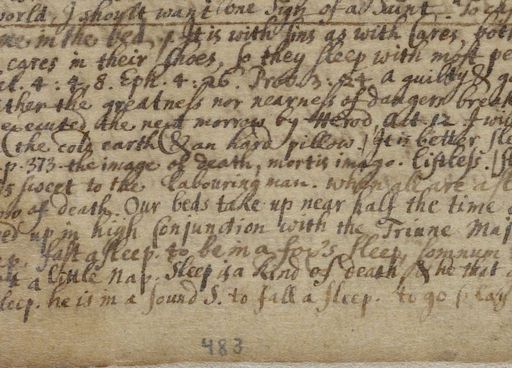 world, I should want one sign of a Saint. To
in the bed, It is with sins as with cares, both
cares in their shoes, so they sleep with most
4. 4. 8. Eph. 4. 26. Prov. 3. 24 a guilty &
the greatness nor nearness of dangers break
executed the next morrow by Herod Act. 12. I will
(the cold earth (& an hard pillow. It is better
p. 373. the image of death, mortis imago. Listless.
sweet to the labouring man. when all are a
of death. Our beds take up near half the time
up in high Conjunction with the Triune Maj
fast asleep. to be in a fox's sleep, somnum
a little nap. Sleep is a kind of death & he that
sleep. he is in a sound S. to fall a sleep. to go
483